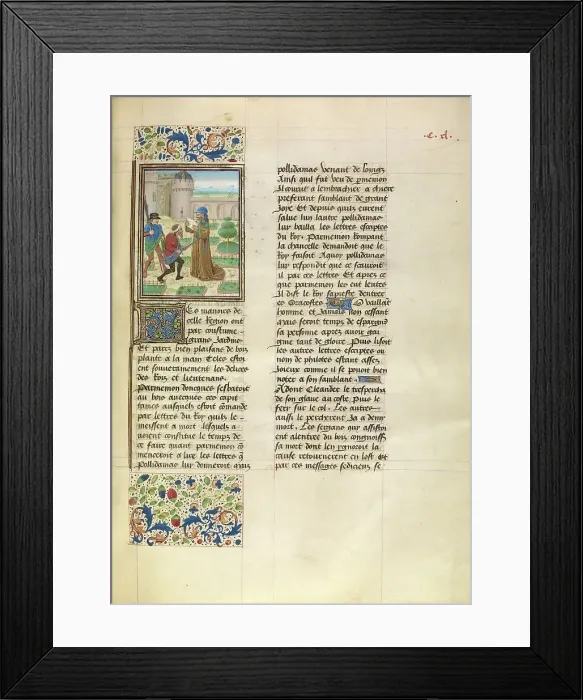 .C. xl.
Es manoirs de
celle Region ont
par coustume
grans Jardins
Et parcz bien plaisans de bois
plante a la main Telles estoi
ent souverainement les delices
des Rois et lieutenans.
Parmenion doncques sesbatoit
au bois avecques ces capi
taines ausquelz estoit commande
par lettres du Roy quilz le
meissent a mort lesquelz a
voient constitue le temps de
ce faire quant parmenion
menceroit a lire les lettres q
Pollidamas luy donneroit
pollidamas venant de loingz
Ainsi quil fut veu de
Il courut a lembrachier a chiere
preferant samblant de grant
Joye Et depuis quilz eurent
salue lun lautre pollidamas
luy bailla les lettres escriptes
du Roy. Parmenion Rompant
la chancelle demandoit que le
Roy faisoit Aquoy pollidamas
luy respondit que ce scauroit
il par ces lettres Et apres ce
que parmenion les eut leutes
Il dist le Roy sapreste dentrer
es vaillant
homme et Jamais non cessant
mais seroit temps de espargnier
sa personne apres avoir
quise tant de gloire Puis lisoit
les autres lettres escriptes ou
nom de philotes estant assez
Joieux comme il se pouoit bien
noter a son samblant.
Adont Cleander le tresperca
de son glaive au coste Puis le
ferir sur le col. Les autres
aussi le percherent Ja a demy
mort. Les sergans qui assistoi
ent alentree du bois congnoiss
sa mort dont len ygnoroit la
cause retournerent en lost Et
par ces messages sedicieux se